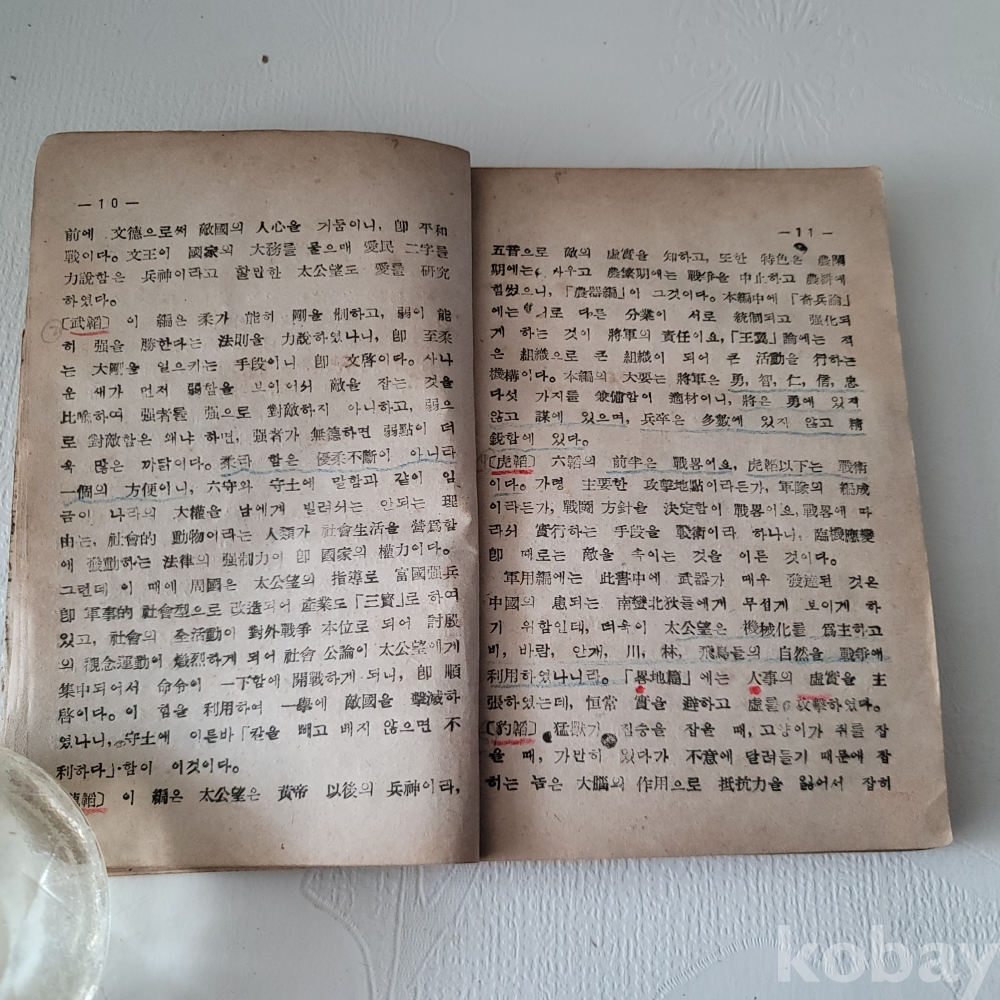 —10—
前에 文德으로써 敵國의 人心을 거둠이니, 卽 平和
戰이다. 文王이 國家의 大務를 물으매 愛民 二字를
力說함은 兵神이라고 할만한 太公望도 愛를 硏究
하였다。
〔武韜〕 이 編은 柔가 能히 剛을 制하고, 弱이 能
히 强을 勝한다는 法則을 力說하였나니, 卽 至柔
는 大剛을 일으키는 手段이니 卽 文啓이다. 사나
운 새가 먼저 弱함을 보이어쇠 敵을 잡는 것을
比喩하여 强者를 强으로 對敵하지 아니하고, 弱으
로 對敵함은 왜냐 하면, 强者가 無德하면 弱點이 더
욱 많은 까닭이다. 柔라 함은 優柔不斷이 아니라
一個의 方便이니, 六守와 守土에 말함과 같이 임
금이 나라의 大權을 남에게 빌려쇠는 안되는 理
由는, 社會的 動物이라는 人類가 社會生活을 營爲함
에 發動하는 法律의 强制力이 卽 國家의 權力이다.
그런데 이 때에 周國은 太公望의 指導로 富國强兵
卽 軍事的 社會型으로 改造되어 產業도「三寶」로 하여
있고, 社會의 全活動이 對外戰爭 本位로 되어 討殷
의 觀念運動이 熾烈하게 되어 社會 公論이 太公望에게
集中되어서 命令이 一下함에 開戰하게 되니, 卽 順
啓이다. 이 힘을 利用하여 一擧에 敵國을 擊滅하
였나니, 守土에 이른바「칼을 빼고 베지 않으면 不
利하다」함이 이것이다。
韜〕 이 編은 太公望은 黃帝 以後의 兵神이라,
—11—
五音으로 敵의 虛實을 知하고, 또한 特色은 農閑
期에는 싸우고 農繁期에는 戰爭을 中止하고 農耕에
힘썼으니,「農器編」이 그것이다. 本編中에「奇兵論」
에는 서로 다른 分業이 서로 統制되고 强化되
게 하는 것이 將軍의 責任이요,「王翼」論에는 적
은 組織으로 큰 組織이 되어 큰 活動을 行하는
機構이다. 本編의 大要는 將軍은 勇, 智, 仁, 信, 忠
다섯 가지를 兼備함이 適材이니, 將은 勇에 있지
않고 謀에 있으며, 兵卒은 多數에 있지 않고 精
銳함에 있다。
〔虎韜〕 六韜의 前半은 戰畧이요, 虎韜以下는 戰術
이다. 가령 主要한 攻擊地點이라든가, 軍隊의 編成
이라든가, 戰鬪 方針을 決定함이 戰畧이요, 戰畧에 따
라쇠 實行하는 手段을 戰術이라 하나니, 臨機應變
卽 때로는 敵을 속이는 것을 이른 것이다。
軍用編에는 此書中에 武器가 매우 發達된 것은
中國의 患되는 南蠻北狄들에게 무섭게 보이게 하
기 위함인데, 더욱이 太公望은 機械化를 爲主하고
비, 바람, 안개, 川, 林, 飛鳥들의 自然을 戰爭에
利用하였나니라.「畧地篇」에는 人事의 虛實을 主
張하였는데, 恒常 實을 避하고 虛를 攻擊하였다。
〔豹韜〕 猛獸가 짐승을 잡을 때, 고양이가 쥐를 잡
을 때, 가만히 있다가 不意에 달려들기 때문에 잡
히는 놈은 大腦의 作用으로 抵抗力을 잃어서 잡히
kobay